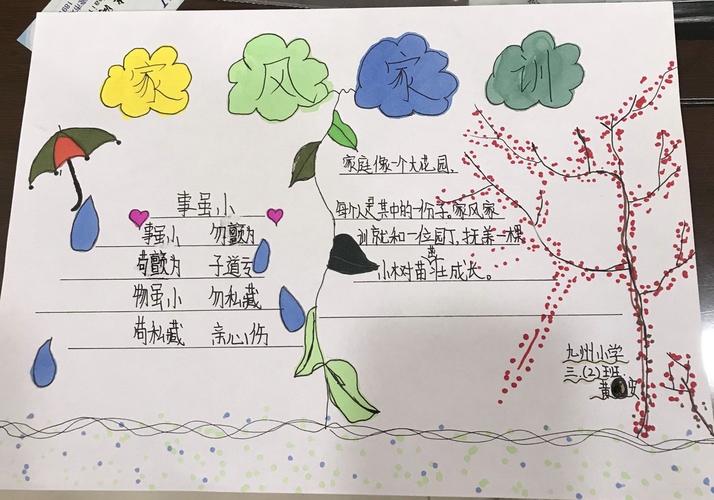 家风家训
事虽小
事虽小 勿颤为
苟颤为 子道亏
物虽小 勿私藏
苟私藏 亲心伤
家庭像一个大花园,
每个人是其中的一份子。家风家
训就和一位园丁,抚养一棵
小树苗茁壮成长。
九州小学
三.(2)班.
黄 安